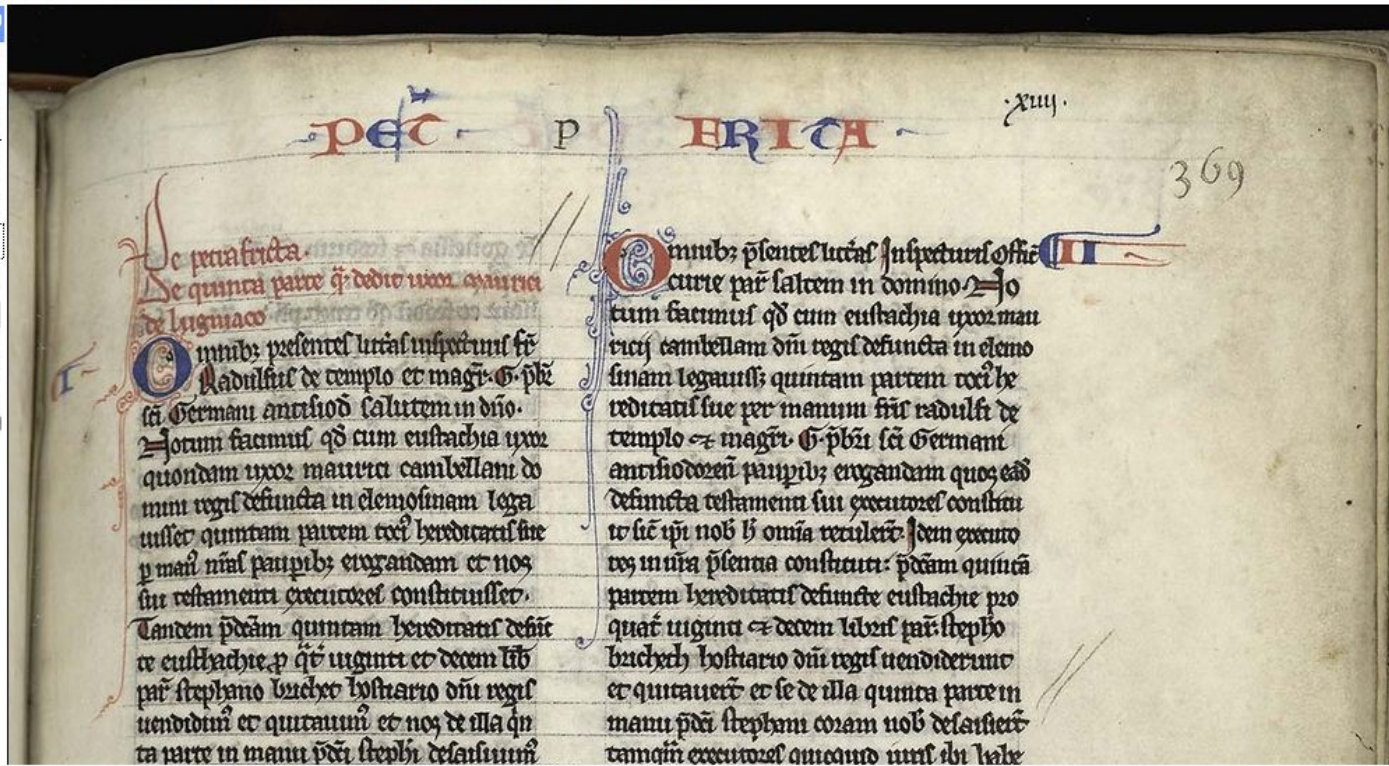 PET P ERITA
.xiiij.
369
De petra fricta.
De quinta parte q̃ dedit uxor mauricii
de lugniaco
I
Omnibꝫ presentes litt̃as inspecturis fr̃
Radulfus de templo et magr̃. G. pb̃r
sc̃i Germani antisiod̃ salutem in dño.
Notum facimus qd̃ cum eustachia uxor
quondam uxor maurici cambellani do
mini regis defuncta in elemosinam lega
uisset quintam partem toci᷒ hereditatis sue
ꝑ man᷒ nr̃as pauꝑibꝫ erogandam et nos
sui testamenti executores constituisset.
Tandem p̃dc̃am quintam hereditatis defũc
te eustachie ꝓ q̃t̃ uiginti et decem lib̃
par̃ stephano brichet hostiario dñi regis
uendidim᷒ et quitauim᷒ et nos de illa qũ
ta parte in manu p̃dc̃i steph̃i desaisiuim᷒
Omnibꝫ p̃sentes litt̃as Inspecturis Offic̃
curie par̃ saltem in domino. No
tum facimus qd̃ cum eustachia uxor mau
ricij cambellani dñi regis defuncta in elemo
sinam legauissꝫ quintam partem toci᷒ he
reditatis sue per manum fr̃is radulfi de
templo ⁊ magr̃i. G. pb̃ri sc̃i Germani
antisiodoreñ pauꝑibꝫ erogandam quos ead̃
defuncta testamenti sui executores constitu
it sic̃ ip̃i nob̃ h̃ om̃ia retuler̃t. Idem executo
res in nr̃a p̃sentia constituti: p̃dc̃am quintã
partem hereditatis defuncte eustachie pro
quat̃ uiginti ⁊ decem libris par̃. steph̃o
brichech hostiario dñi regis uendiderunt
et quitauer̃t et se de illa quinta parte in
manu p̃dc̃i stephani coram nob̃ desaisier̃t
tamq̃m executores quicquid iuris ibi habe
II